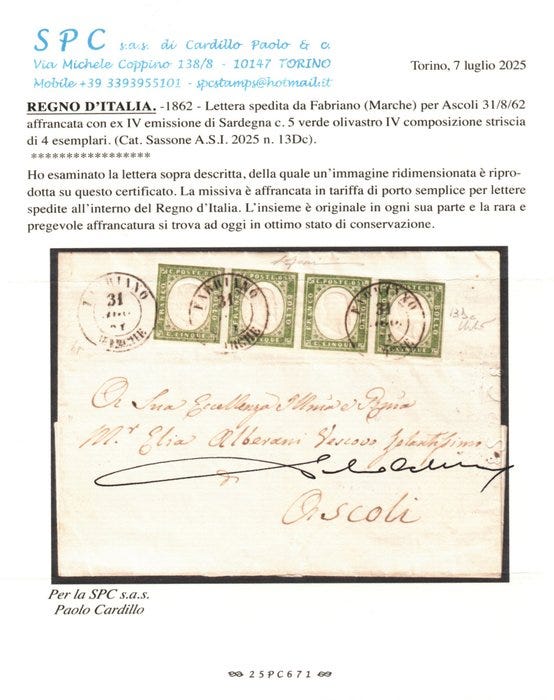 SPC s.a.s. di Cardillo Paolo & c.
Via Michele Coppino 138/8 - 10147 TORINO
Mobile +39 3393955101 - spcstamps@hotmail.it
Torino, 7 luglio 2025
REGNO D'ITALIA. -1862 - Lettera spedita da Fabriano (Marche) per Ascoli 31/8/62
affrancata con ex IV emissione di Sardegna c. 5 verde olivastro IV composizione striscia
di 4 esemplari. (Cat. Sassone A.S.I. 2025 n. 13Dc).
*****************
Ho esaminato la lettera sopra descritta, della quale un'immagine ridimensionata è ripro-
dotta su questo certificato. La missiva è affrancata in tariffa di porto semplice per lettere
spedite all'interno del Regno d'Italia. L'insieme è originale in ogni sua parte e la rara e
pregevole affrancatura si trova ad oggi in ottimo stato di conservazione.
FABRIANO
31
MARCHE
C. POSTE
FRANCO
BOLLO
C. CINQUE
13Dc
A Sua Eccellenza Illma e Rma
Mr. Elia Alberani Vescovo
di
Ascoli
Per la SPC s.a.s.
Paolo Cardillo
25PC671